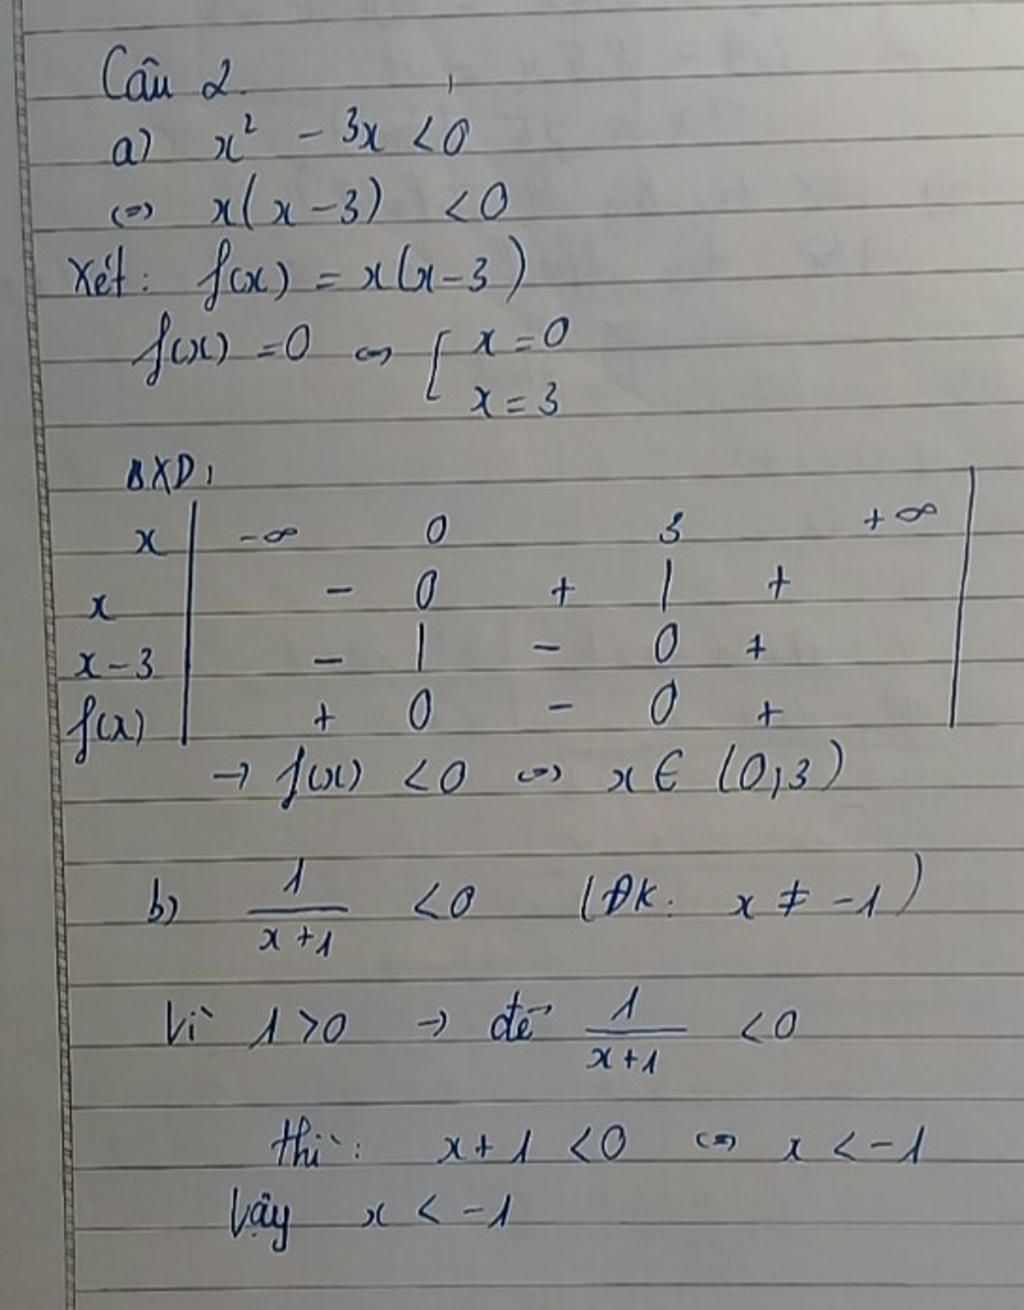 Câu 2.
a) x² - 3x < 0
⇔ x(x-3) < 0
Xét: f(x) = x(x-3)
f(x) = 0 ⇔ [ x = 0
x = 3
BXD:
x | -∞ 0 3 +∞ |
x | - 0 + | + |
x-3 | - | - 0 + |
f(x) | + 0 - 0 + |
→ f(x) < 0 ⇔ x ∈ (0;3)
b) 1/(x+1) < 0 (ĐK: x ≠ -1)
Vì 1 > 0 → để 1/(x+1) < 0
thì: x+1 < 0 ⇔ x < -1
Vậy x < -1